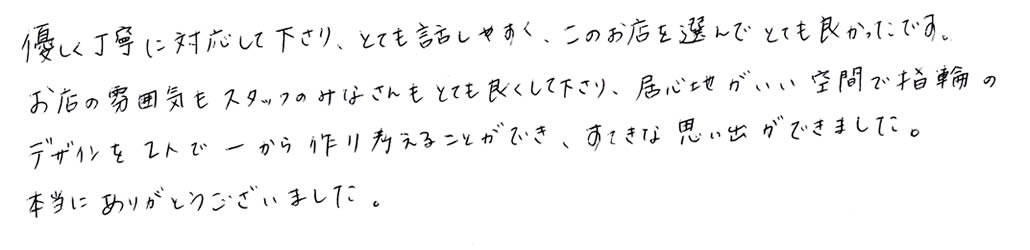 優しく丁寧に対応して下さり、とても話しやすく、このお店を選んでとても良かったです。
お店の雰囲気もスタッフのみなさんもとても良くして下さり、居心地がいい空間で指輪の
デザインを2人で一から作り考えることができ、すてきな思い出ができました。
本当にありがとうございました。